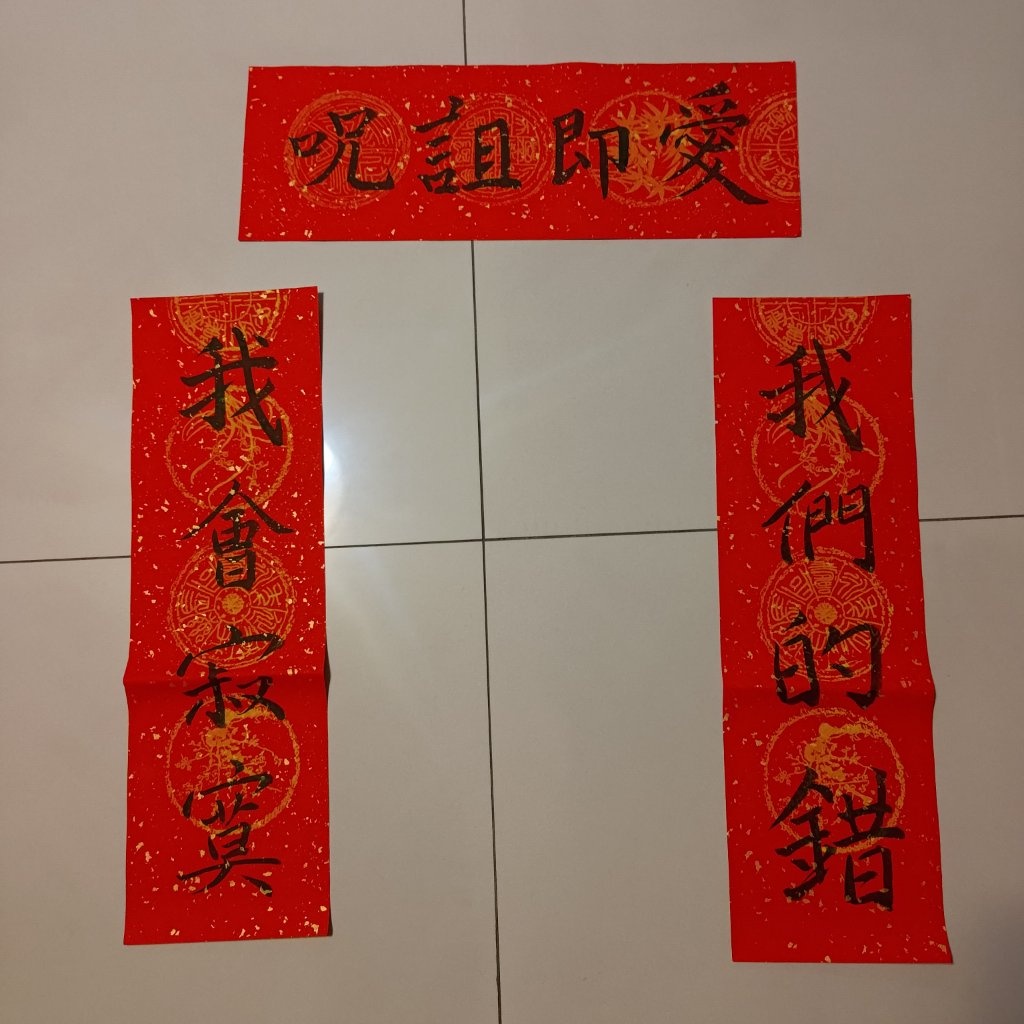 呪詛即愛
我會寂寞
我們的錯